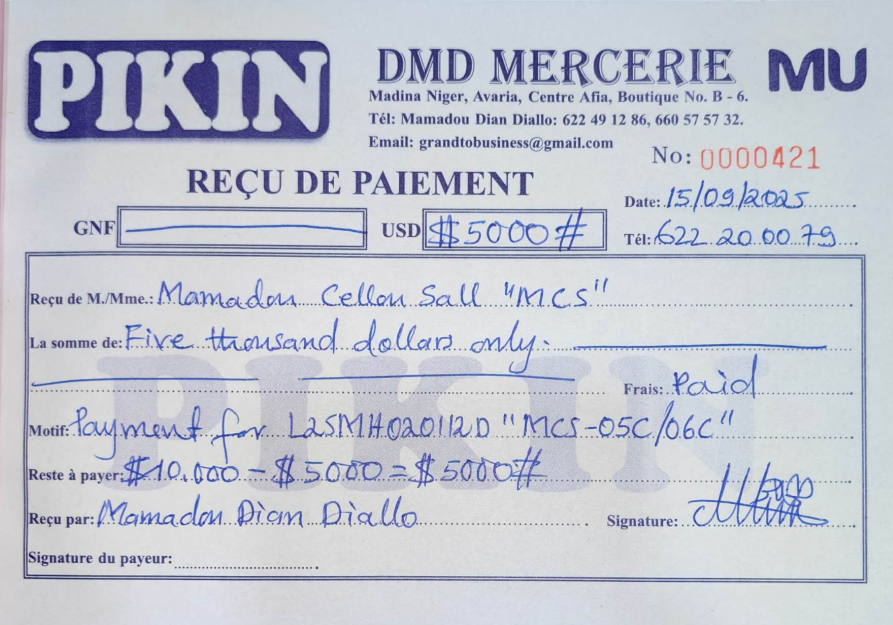 PIKIN
DMD MERCERIE
MU
Madina Niger, Avaria, Centre Afia, Boutique No. B - 6.
Tél: Mamadou Dian Diallo: 622 49 12 86, 660 57 57 32.
Email: grandtobusiness@gmail.com
No: 0000421
REÇU DE PAIEMENT
Date: 15/09/2025
GNF USD $5000#
Tél: 622 20 00 79
Reçu de M./Mme.: Mamadou Cellou Sall "MCS"
La somme de: Five thousand dollars only.
Frais: Paid
PIKIN
Motif: Payment for L25MH020112D "MCS-05C/06C"
Reste à payer: $10.000 - $5000 = $5000#
Reçu par: Mamadou Dian Diallo
Signature:
Signature du payeur: